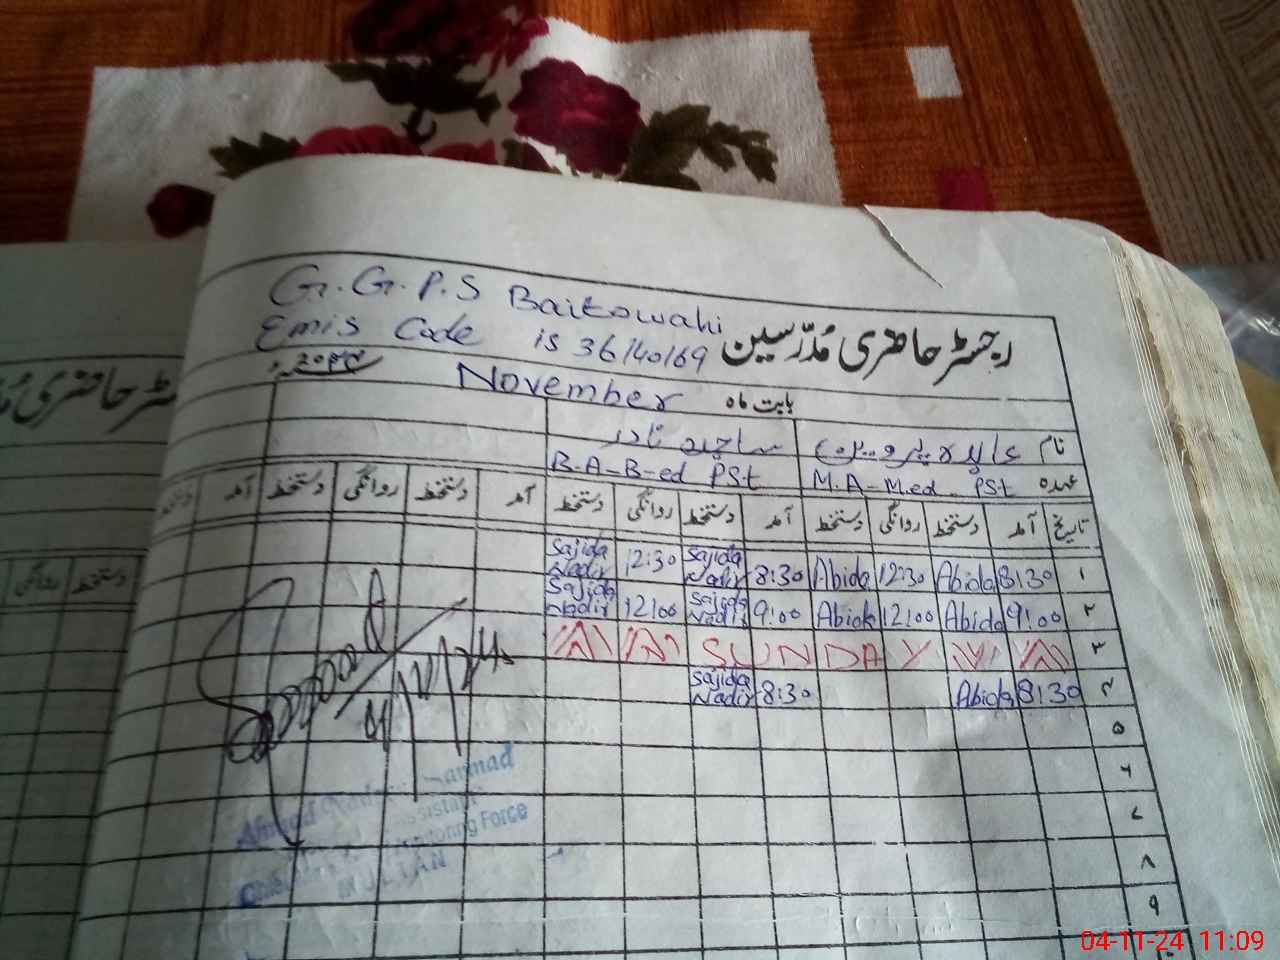 G.G.P.S Baitowahi
Emis Code is 36140169
رجسٹر حاضری مُدرّسین
بابت ماہ November
نام عابدہ پروین ساجدہ نادر
عہدہ M.A-M.ed PSt B.A-B-ed PSt
تاریخ آمد دستخط روانگی دستخط آمد دستخط روانگی دستخط آمد دستخط روانگی دستخط آمد
۱ 8:30 Abida 12:30 Abida 8:30 Sajida Nadir 12:30 Sajida Nadir
۲ 9:00 Abida 12:00 Abida 9:00 Sajida Nadir 12:00 Sajida Nadir
۳ SUNDAY
۴ 8:30 Abida 8:30 Sajida Nadir
۵
۶
۷
۸
۹
Force
MULTAN
حاضری
روانگی دستخط
04-11-24 11:09